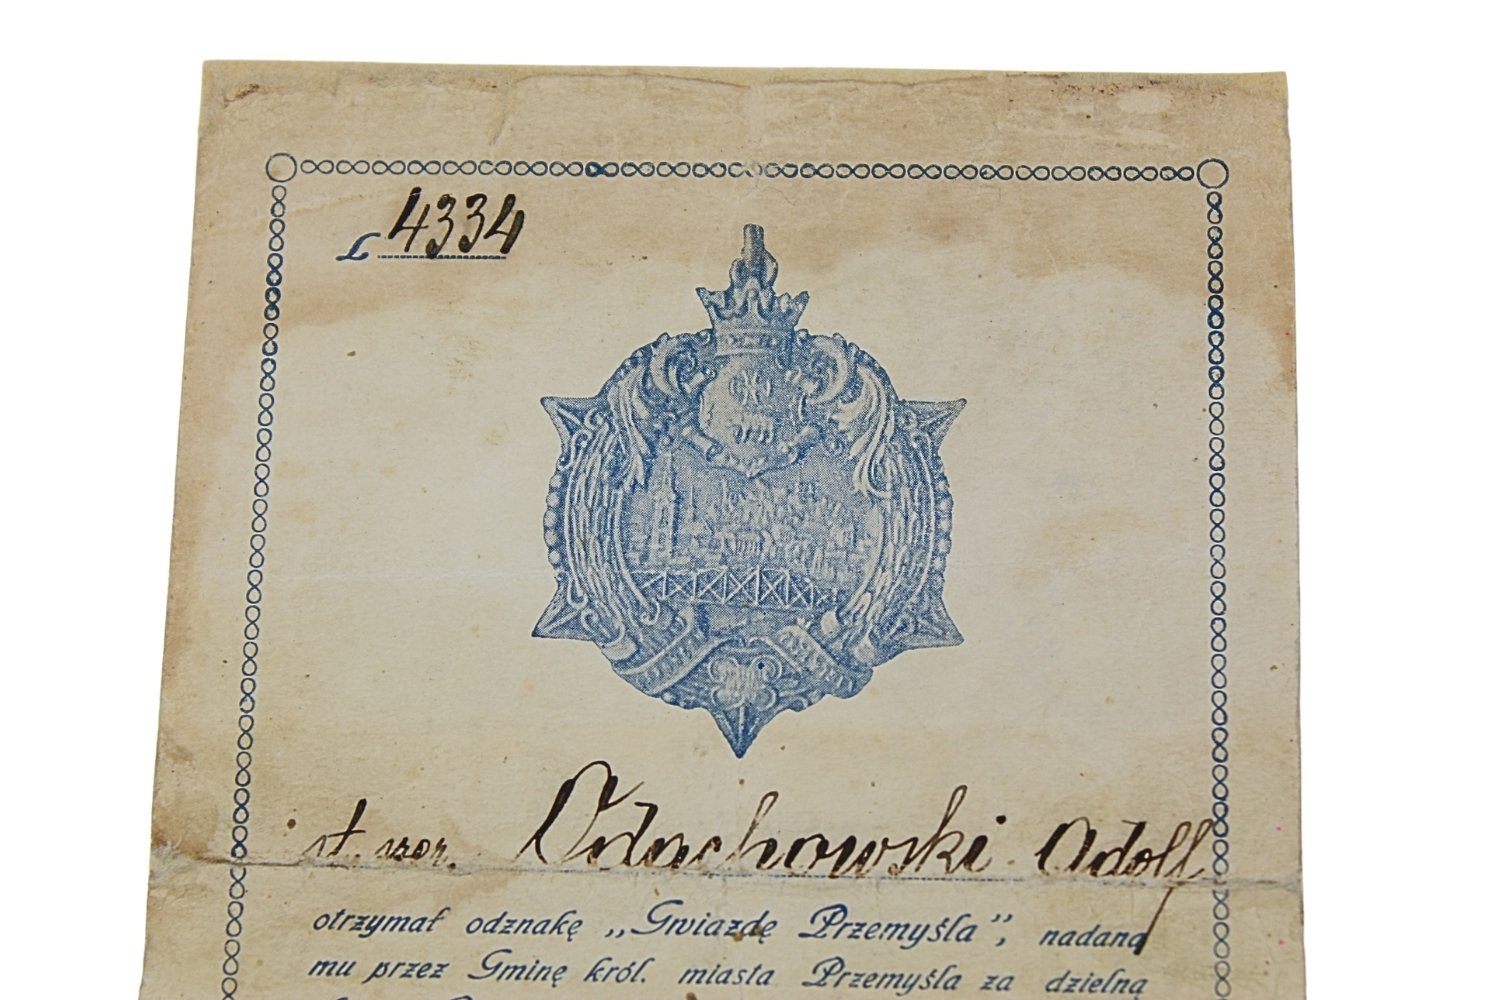 L 4334
st. szer. Odachowski Adolf
otrzymał odznakę „Gwiazdę Przemyśla”, nadaną
mu przez Gminę król. miasta Przemyśla za dzielną